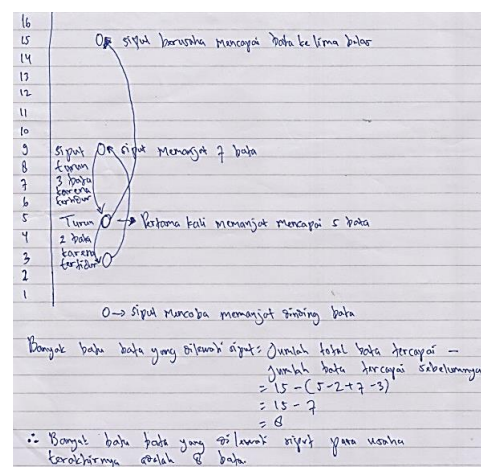 16
15 siput berusaha mencapai bata ke lima belas
14
13
12
11
10
9 siput siput memanjat 7 bata
8 turun
7 3 bata
6 karena tertidur
5 Turun → Pertama kali memanjat mencapai 5 bata
4 2 bata
3 karena tertidur
2
1
O → siput mencoba memanjat dinding bata
Banyak batu bata yang dilewati siput = Jumlah total bata tercapai -
Jumlah bata tercapai sebelumnya
= 15 - (5-2+7-3)
= 15 - 7
= 8
∴ Banyak batu bata yang dilewati siput pada usaha
terakhirnya adalah 8 bata.